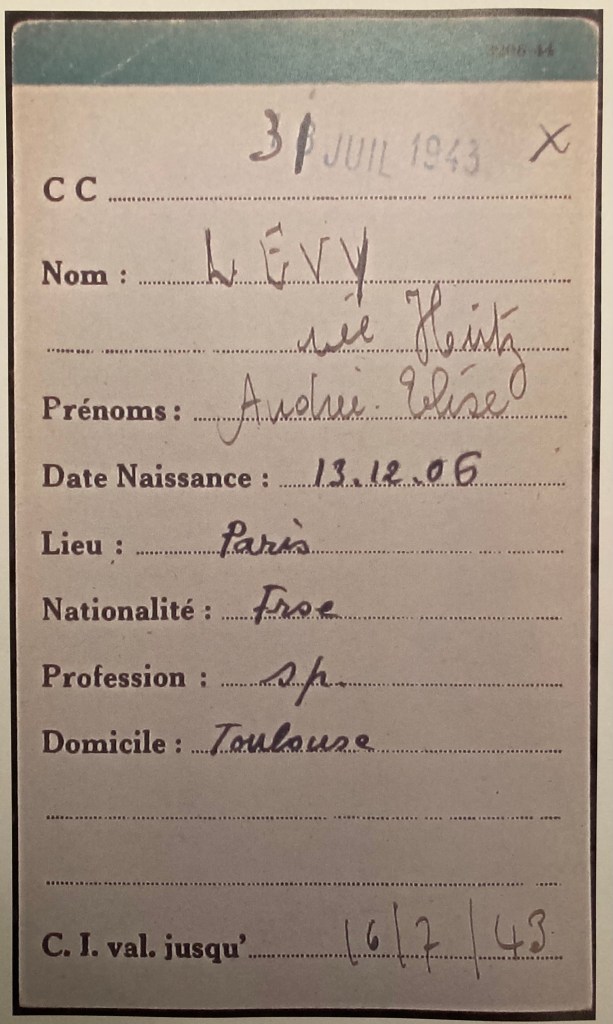 31 JUIL 1943 X
C C
Nom : LÉVY
née Hertz
Prénoms : Andrée. Elise
Date Naissance : 13.12.06
Lieu : Paris
Nationalité : Frse
Profession : sp.
Domicile : Toulouse
C. I. val. jusqu' 16/7/43